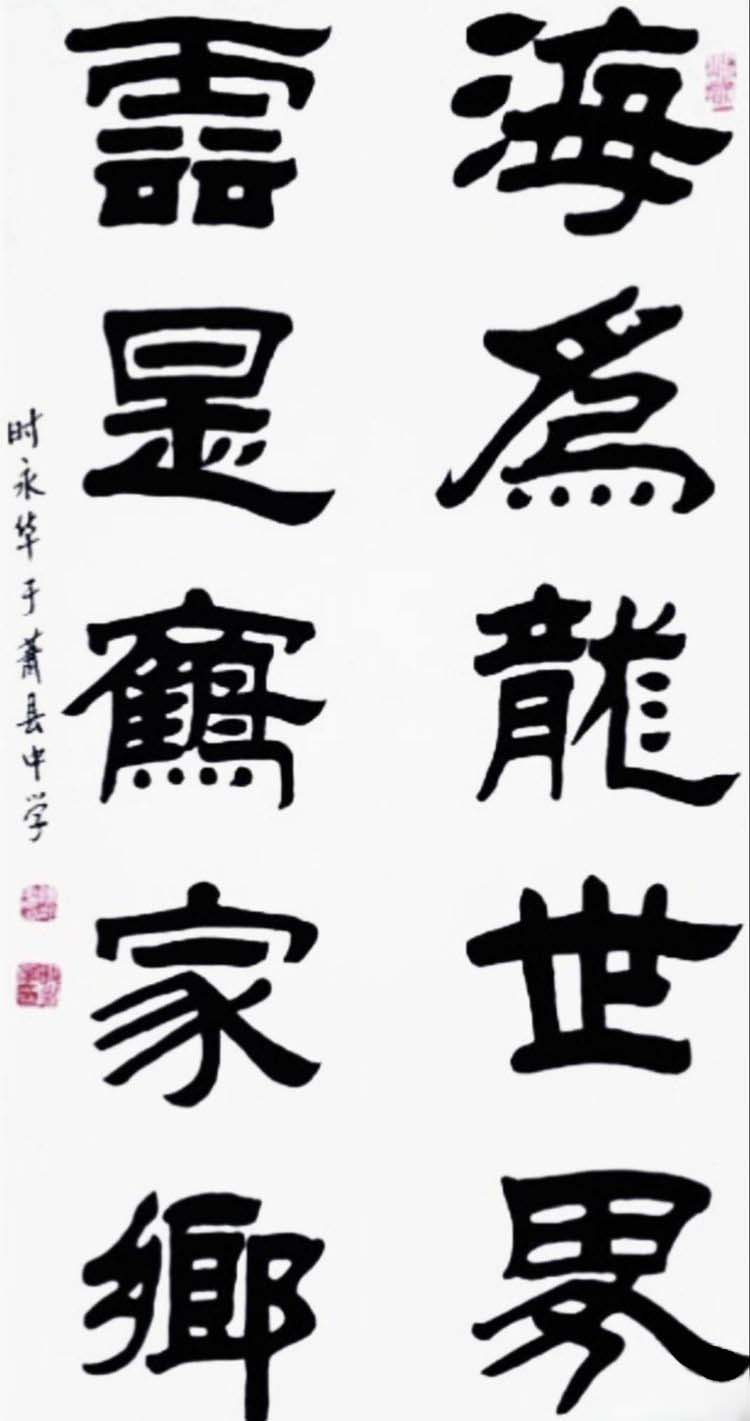 海爲龍世界
雲是鶴家鄉
时永华于萧县中学